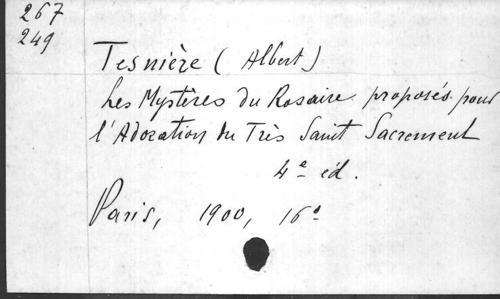 267
249
Tesnière (Albert)
Les Mystères du Rosaire proposés pour
l'Adoration du Très Saint Sacrement
4e éd.
Paris, 1900, 16°